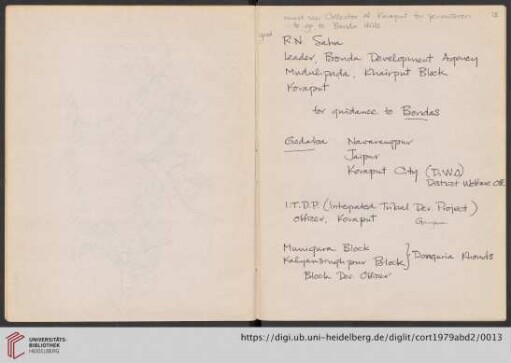 must see Collector at Koraput for permission
to go to Bonda Hills
13
good
R.N. Saha
Leader, Bonda Development Agency
Mudulipada, Khairput Block
Koraput
for guidance to Bondas
Gadaba Nawarangpur
Jaipur
Koraput City (D.W.O)
District Welfare Off.
I.T.D.P. (Integrated Tribal Dev. Project)
Officer, Koraput
Munigura Block
Kalyansinghpur Block } Dongaria Khonds
Block Dev. Officer
UNIVERSITÄTS-
BIBLIOTHEK
HEIDELBERG
https://digi.ub.uni-heidelberg.de/diglit/cort1979abd2/0013